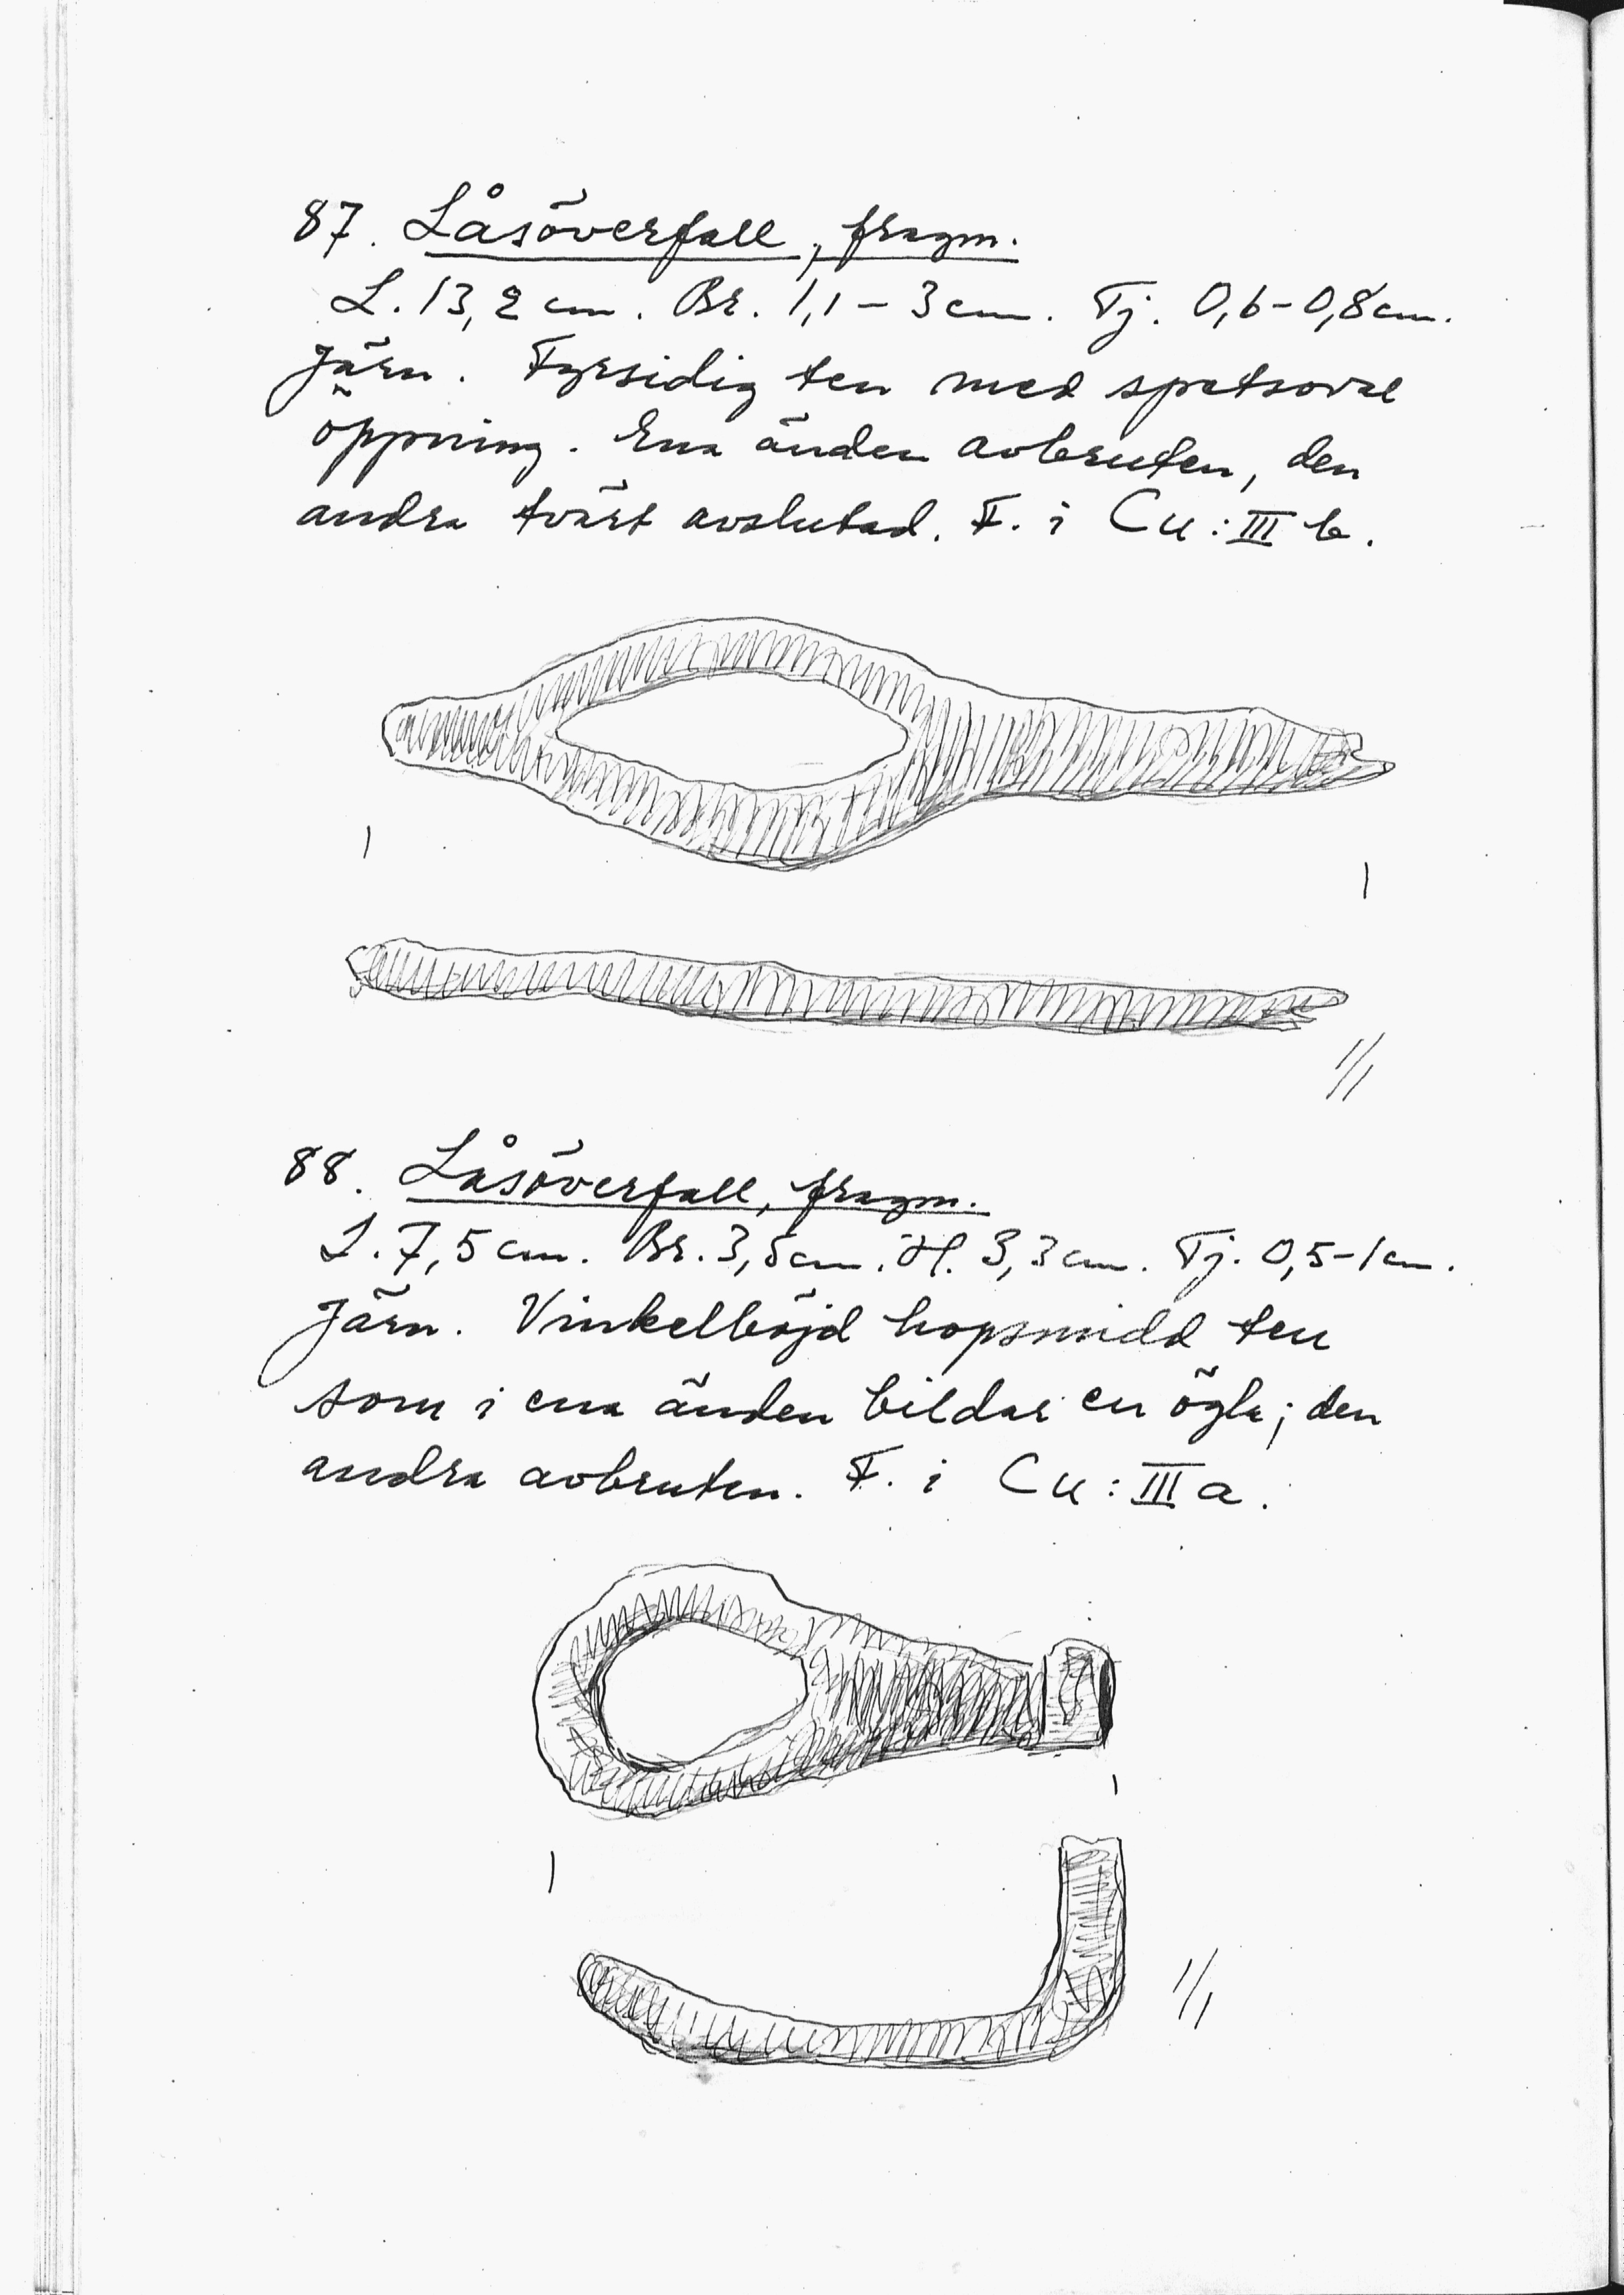 87. Låsöverfall, fragm.
L. 13,2 cm. Br. 1,1 – 3 cm. Tj. 0,6–0,8 cm.
Järn. Fyrsidig ten med spetsoval
öppning. Ena änden avbruten, den
andra tvärt avslutad. F. i Cu: III b.
1/1
88. Låsöverfall, fragm.
L. 7,5 cm. Br. 3,5 cm. H. 3,3 cm. Tj. 0,5–1 cm.
Järn. Vinkelböjd hopsmidd ten
som i ena änden bildar en ögla; den
andra avbruten. F. i Cu: III a.
1/1